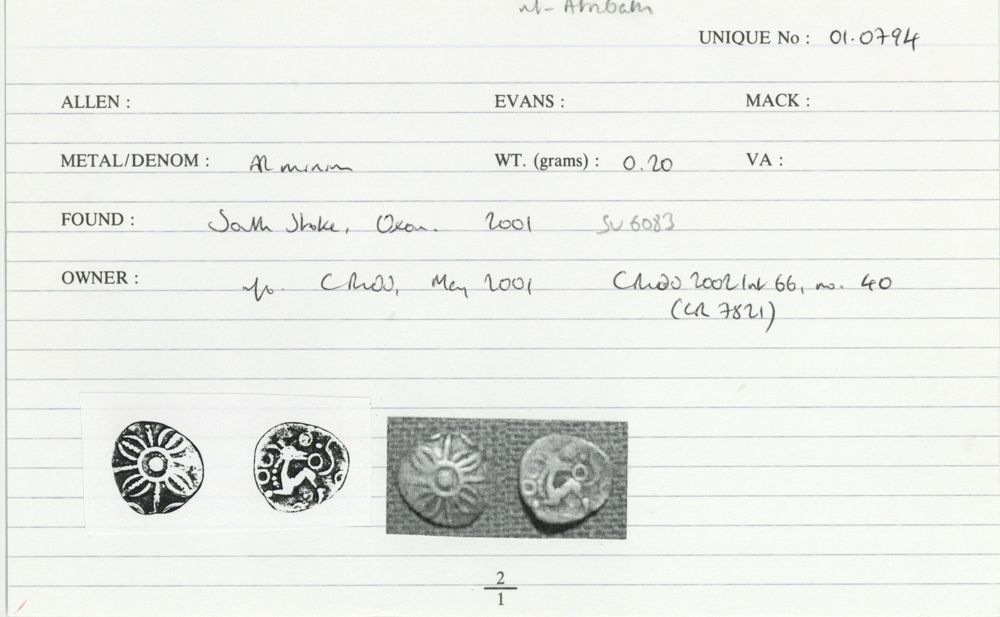 UNIQUE No : 01.0794
ALLEN : EVANS : MACK :
METAL/DENOM : AR minim WT. (grams) : 0.20 VA :
FOUND : South Stoke, Oxon. 2001 SU 6083
OWNER : CR, May 2001 2002 66, no. 40
(CR 7821)
2
1